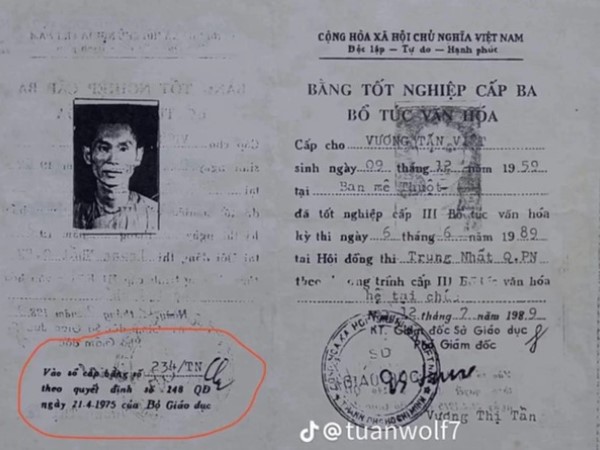 CỘNG HÒA XÃ HỘI CHỦ NGHĨA VIỆT NAM
Độc lập - Tự do - Hạnh phúc
BẰNG TỐT NGHIỆP CẤP BA
BỔ TÚC VĂN HÓA
Cấp cho VƯƠNG TẤN VIỆT
sinh ngày 09 tháng 12 năm 1959
tại Ban mê Thuột
đã tốt nghiệp cấp III Bổ túc văn hóa
kỳ thi ngày 6 tháng 6 năm 1989
tại Hội đồng thi Trung Nhất Q.PN
trình cấp III văn hóa
hệ tại
12 tháng 7 năm 1989
KT. Giám đốc Sở Giáo dục
Giám đốc
SỞ
GIÁO DỤC
Vương Thị Tần
Vào sổ cấp bằng số 234/TN
theo quyết định số 148 QĐ
ngày 21.4.1975 của Bộ Giáo dục
@tuanwolf7